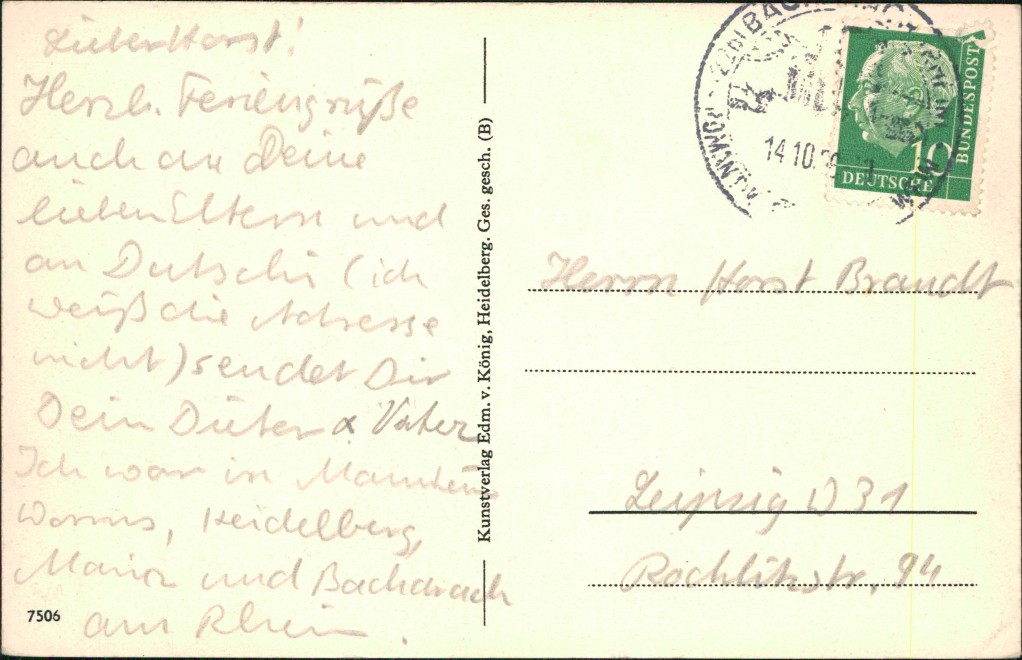 Lieber Horst!
Herzl. Feriengrüße
auch an Deine
lieben Eltern und
an (ich
weiß die Adresse
nicht) sendet Dir
Dein Dieter & Vater
Ich war in
Worms, Heidelberg,
Mainz und Bacharach
am Rhein.
7506
Kunstverlag Edm. v. König, Heidelberg. Ges. gesch. (B)
14.10.
DEUTSCHE
BUNDESPOST
10
Herrn Horst Brandt
Leipzig O 31
Rochlitzstr. 94